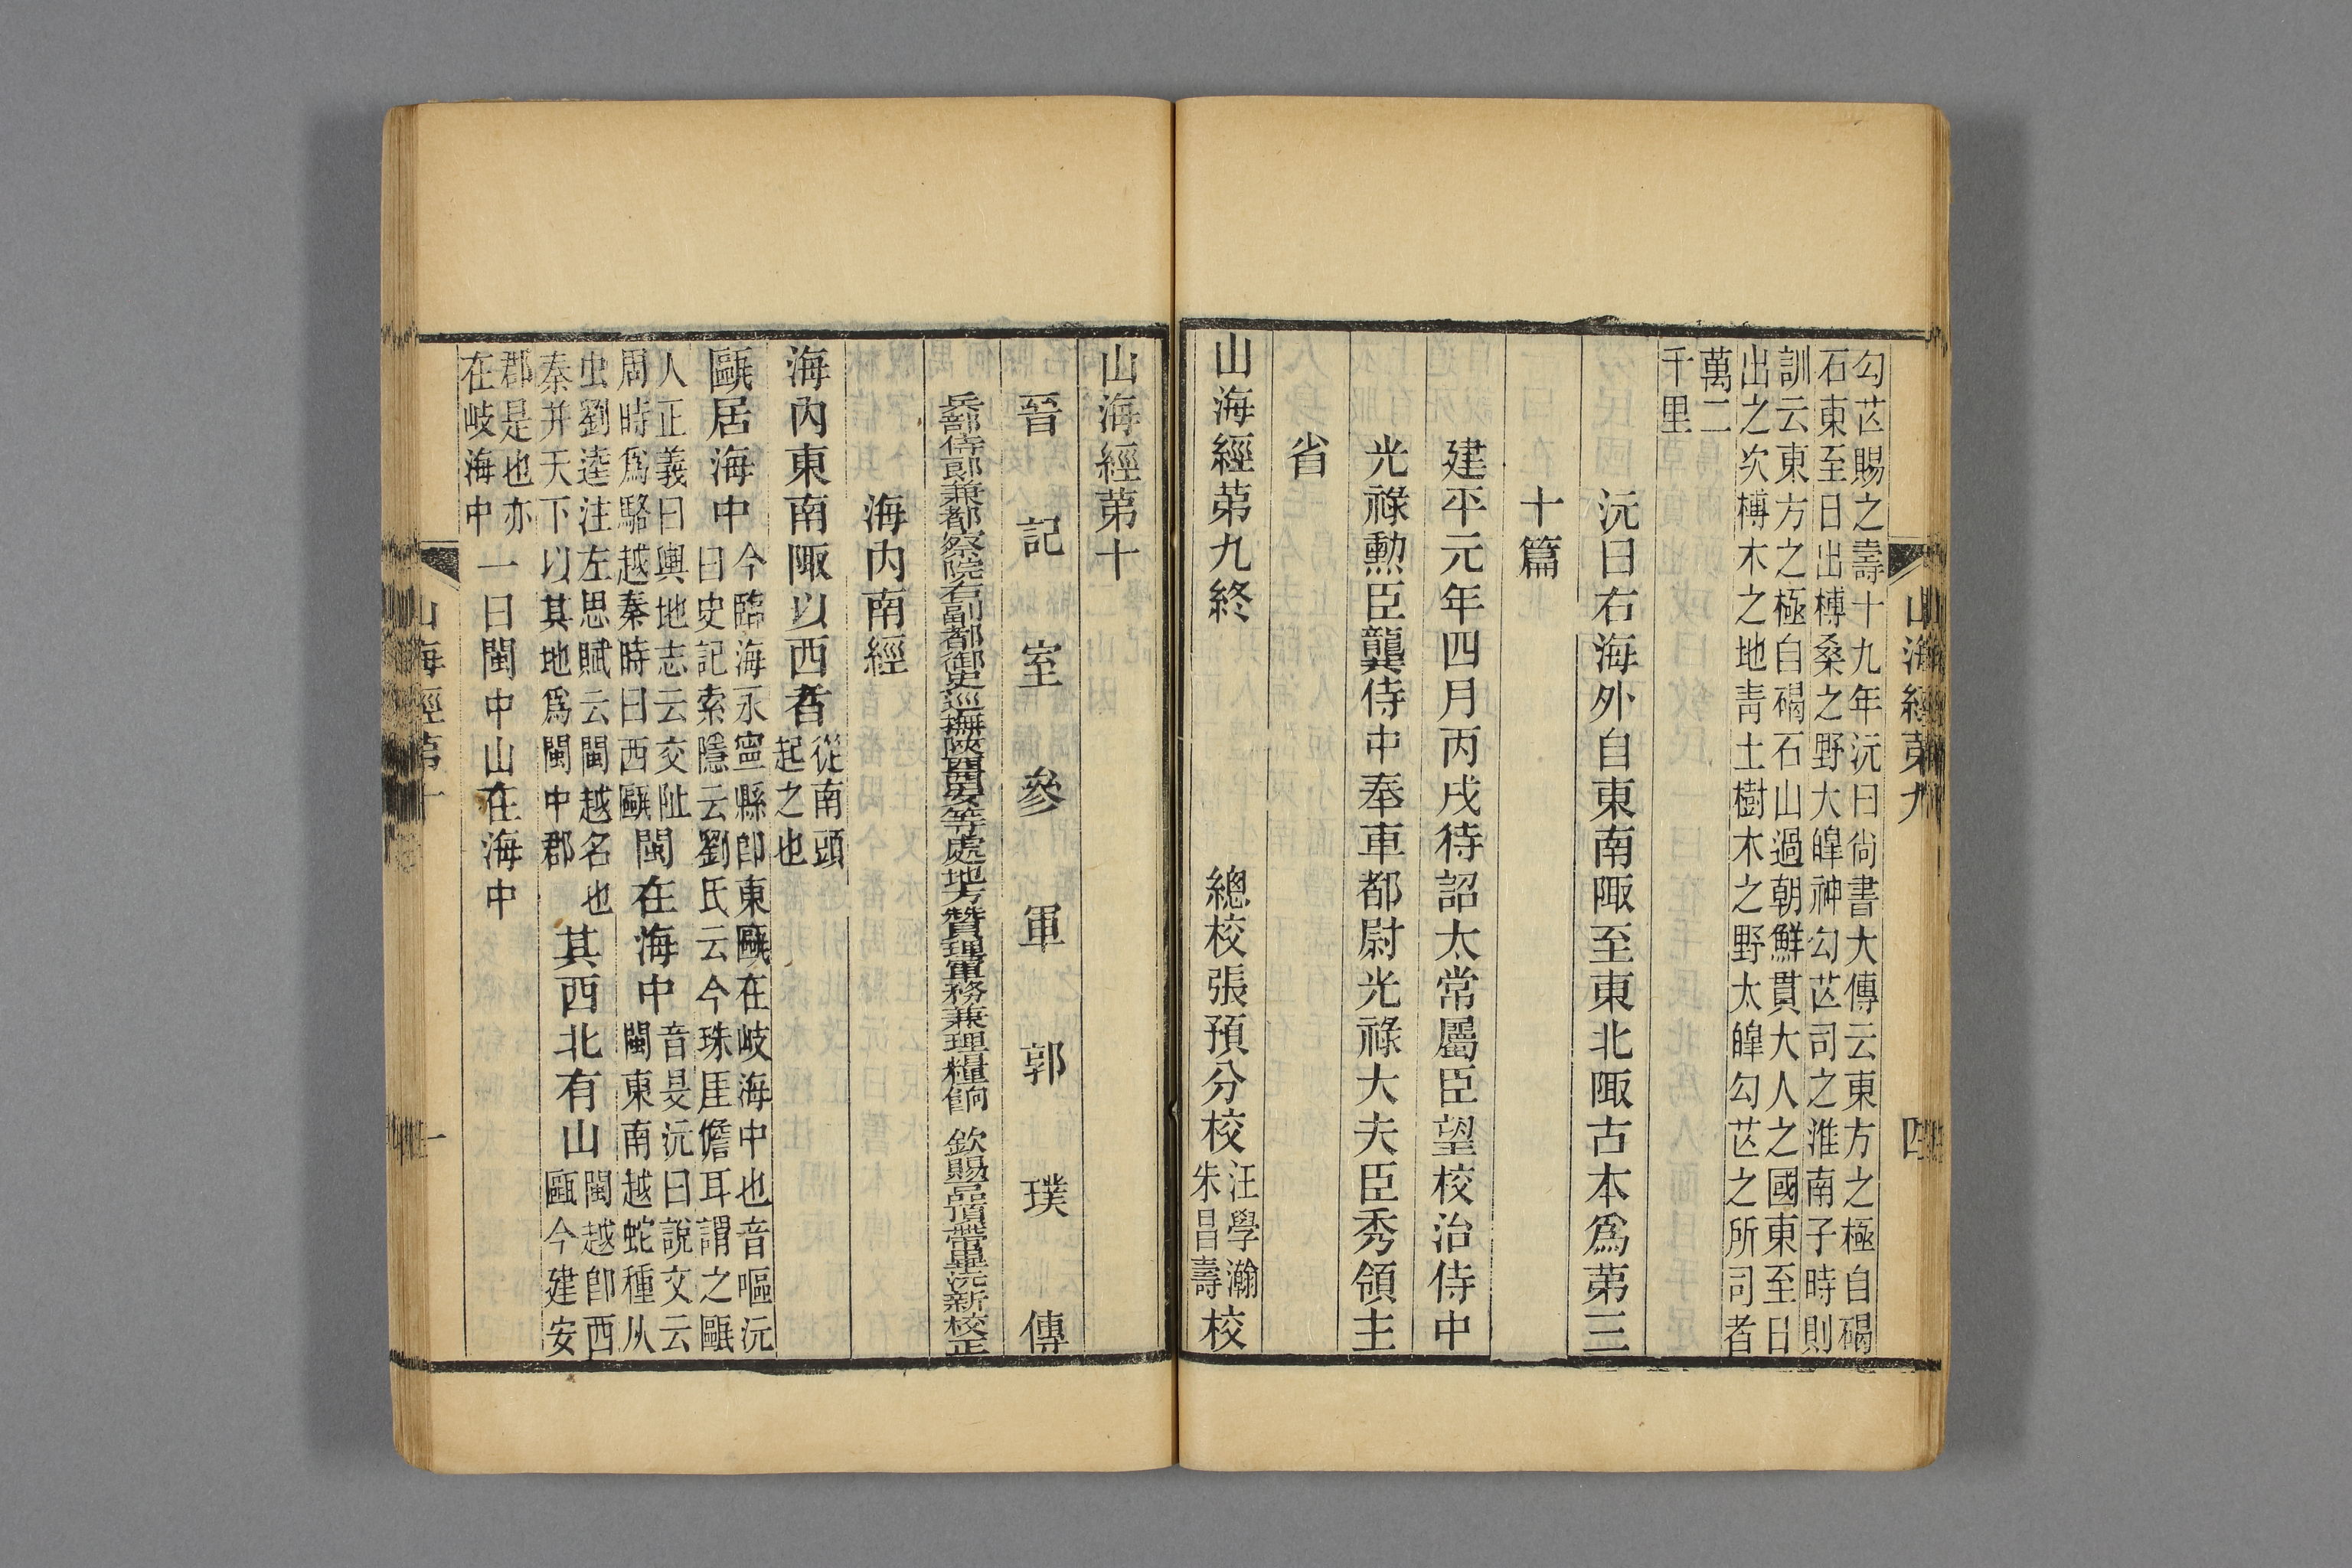 勾芒賜之壽十九年沅曰尙書大傳云東方之極自碣
石東至日出榑桑之野大皥神勾芒司之淮南子時則
訓云東方之極自碣石山過朝鮮貫大人之國東至日
出之次榑木之地靑土樹木之野太皥勾芒之所司者
萬二
千里
沅曰右海外自東南陬至東北陬古本爲第三
十篇
建平元年四月丙戌待詔太常屬臣望校治侍中
光祿勲臣龔侍中奉車都尉光祿大夫臣秀領主
省
山海經第九終 總校張預分校汪學瀚朱昌壽校
山海經第九 四
山海經第十
晉記室參軍郭璞傳
兵部侍郞兼都察院右副都御史巡撫陝西西安等處地方贊理軍務兼理糧餉 欽賜一品頂帶畢沅新校正
海內南經
海內東南陬以西者從南頭起之也
甌居海中今臨海永寧縣卽東甌在岐海中也音嘔沅曰史記索隱云劉氏云今珠厓儋耳謂之甌
人正義曰輿地志云交阯周時爲駱越秦時曰西甌閩在海中音旻沅曰說文云閩東南越蛇種从
虫劉逵注左思賦云閩越名也秦并天下以其地爲閩中郡其西北有山閩越卽西甌今建安
郡是也亦在岐海中一曰閩中山在海中
山海經第十 一